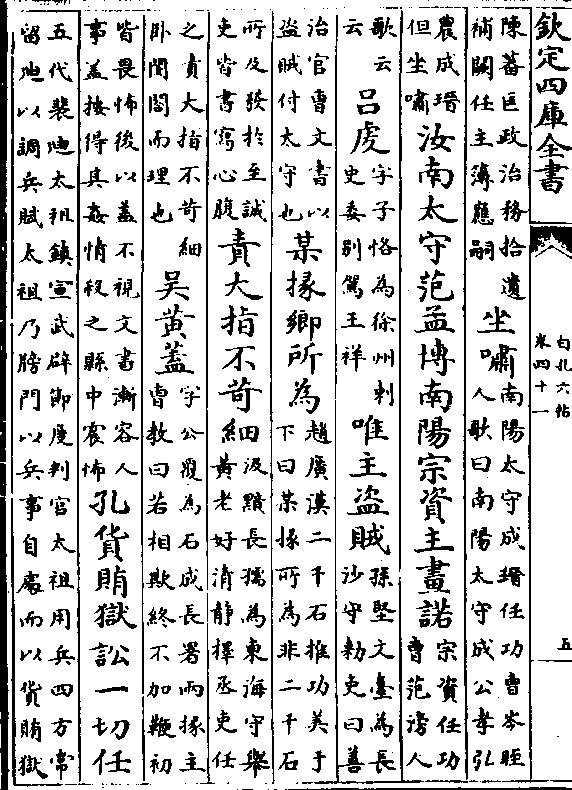 欽定四庫全書
白孔六帖
卷四十一
五
陳蕃匡政治務拾遺補闕任主簿應嗣坐嘯南陽太守成瑨任功曹岑晊人歌曰南陽太守成公孝弘
農成瑨但坐嘯汝南太守范孟博南陽宗資主畫諾宗資任功曹范滂人
歌云云呂虔字子恪為徐州刺史委别駕王祥唯主盜賊孫堅文臺為長沙守勅吏曰善
治官曹文書以盜賊付太守也某掾卿所為趙廣漢二千石推功美于下曰某掾所為非二千石
所及發於至誠吏皆書寫心腹責大指不苛細汲黯長孺為東海守舉黄老好清静擇丞吏任
之責大指不苛細卧閨閤而理也吳黄蓋字公覆為石成長署兩掾主曹教曰若相欺終不加鞭初
皆畏怖後以蓋不視文書漸容人事蓋按得其姦情殺之縣中震怖孔貨賄獄訟一切任
五代裴迪太祖鎮宣武辟節度判官太祖用兵四方常留迪以調兵賦太祖乃牓門以兵事自處而以貨賄獄